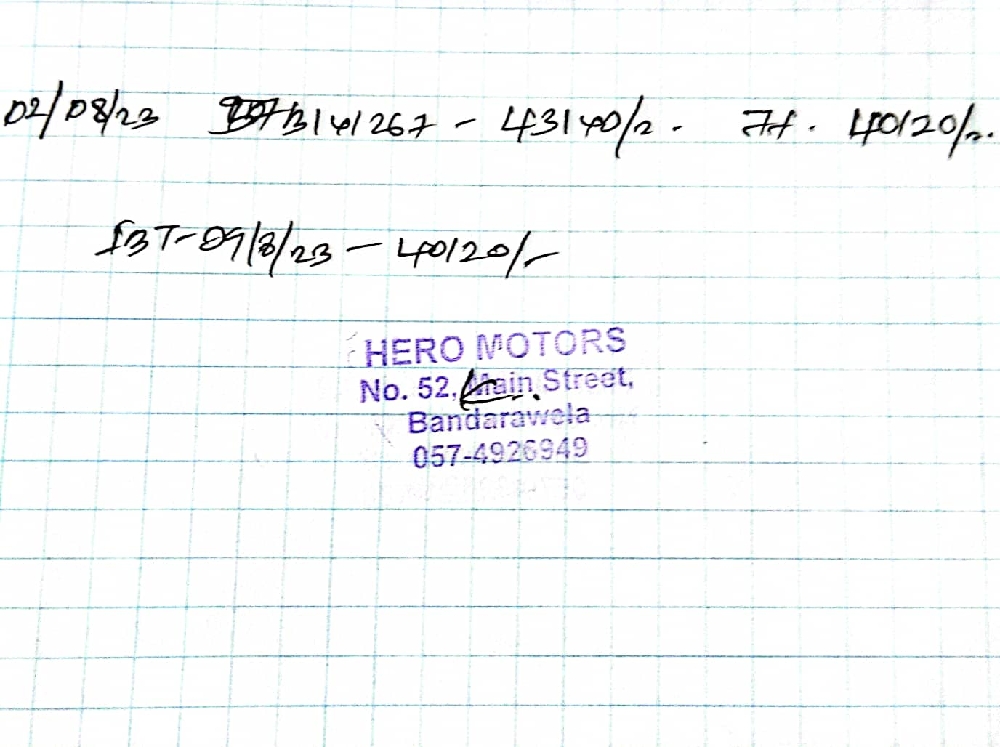 02/08/23 3141267 - 43140/=. 7%. 40120/=.
IBT-09/8/23 - 40120/-
HERO MOTORS
No. 52, Main Street,
Bandarawela
057-4926949